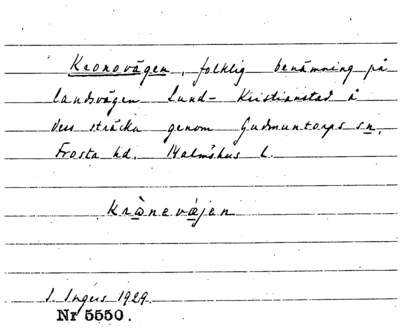 Kronovägen, folklig benämning på
landsvägen Lund - Kristianstad å
dess sträcka genom Gudmuntorps sn,
Frosta hd. Malmöhus l.
Kråneväjen
I. Ingers 1929.
Nr 5550.